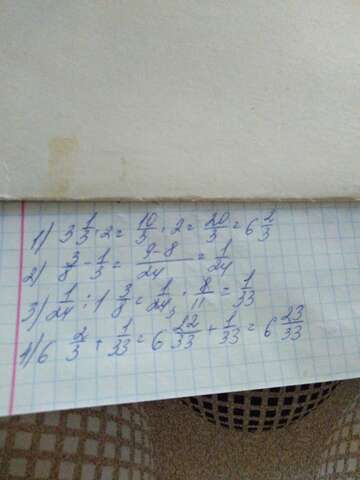 1) 3 1/3 · 2 = 10/3 · 2 = 20/3 = 6 2/3
2) 3/8 - 1/3 = 9-8/24 = 1/24
3) 1/24 : 1 3/8 = 1/24 3 · 8/11 = 1/33
4) 6 2/3 + 1/33 = 6 22/33 + 1/33 = 6 23/33